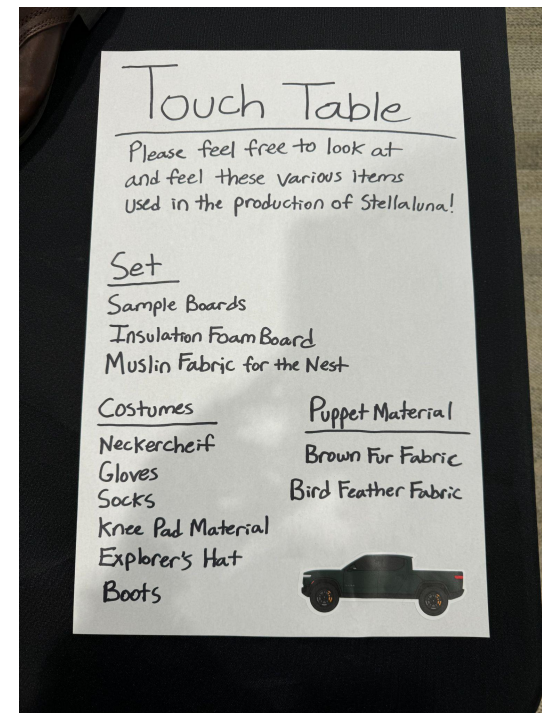 Touch Table
Please feel free to look at
and feel these various items
used in the production of Stellaluna!
Set
Sample Boards
Insulation Foam Board
Muslin Fabric for the Nest
Costumes
Neckercheif
Gloves
Socks
Knee Pad Material
Explorer's Hat
Boots
Puppet Material
Brown Fur Fabric
Bird Feather Fabric